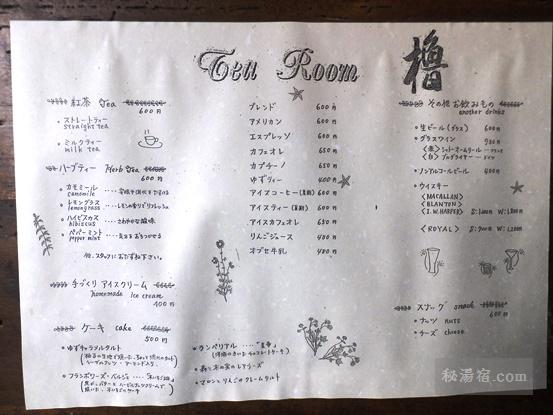 Tea Room
櫓
紅茶 Tea
600円
・ストレートティー
straight tea
・ミルクティー
milk tea
ハーブティー Herb tea
600円
・カモミール
camomile
・レモングラス
lemongrass
・ハイビスカス さわやかな酸味
hibiscus
・ペパーミント 気分をおちつかせる
pepper mint
他、スタッフにおたずね下さい。
手づくりアイスクリーム
homemade ice cream
400円
ケーキ cake
500円
・ゆずキャラメルタルト
・フランボワーズ・ベルジュ
ブレンド 600円
アメリカン 600円
エスプレッソ 600円
カフェオレ 650円
カプチーノ 650円
ゆずティー 400円
アイスコーヒー 600円
アイスティー 600円
アイスカフェオレ 650円
りんごジュース 480円
オブセ牛乳 480円
・ランペリアル
・森と木の実のレアチーズ
・マロンとりんごのクレームタルト
その他お飲みもの
another drinks
・生ビール(グラス) 600円
・グラスワイン
・ノンアルコールビール 400円
・ウイスキー
<MACALLAN>
<BLANTON>
<I.W.HARPER>
<ROYAL>
スナック snack
600円
・ナッツ nuts
・チーズ cheese
秘湯宿.com